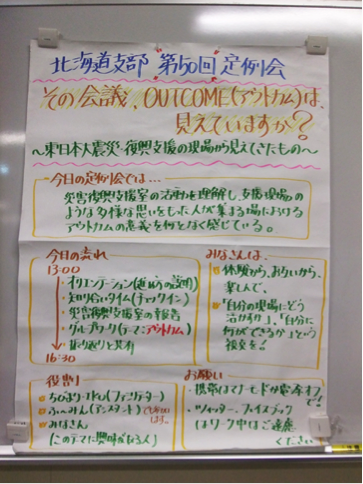 北海道支部 第50回 定例会
その会議、OUTCOME(アウトカム)は、
見えていますか?
〜東日本大震災・復興支援の現場から見えてきたもの〜
今日の定例会では…
災害復興支援室の活動を理解し、支援現場の
ような多様な思いをもった人が集まる場における
アウトカムの意義を何となく感じている。
今日の流れ
13:00
・オリエンテーション
・知り合いタイム(チェックイン)
・災害復興支援室の報告
・グループワーク(テーマ:アウトカム)
・振り返りと共有
16:30
みなさんは…
・体験から、お互いから、
楽しんで、
・「自分の現場にどう
活かすか」、「自分に
何ができるか」という
視点を!
役割
(ファシリテーター)
・ふ〜みん(アシスタント)
・みなさん
(このテーマに興味がある人)
お願い
・携帯はマナーモードか電源オフ
で!
・ツイッター、フェイスブック
はワーク中はご遠慮
ください